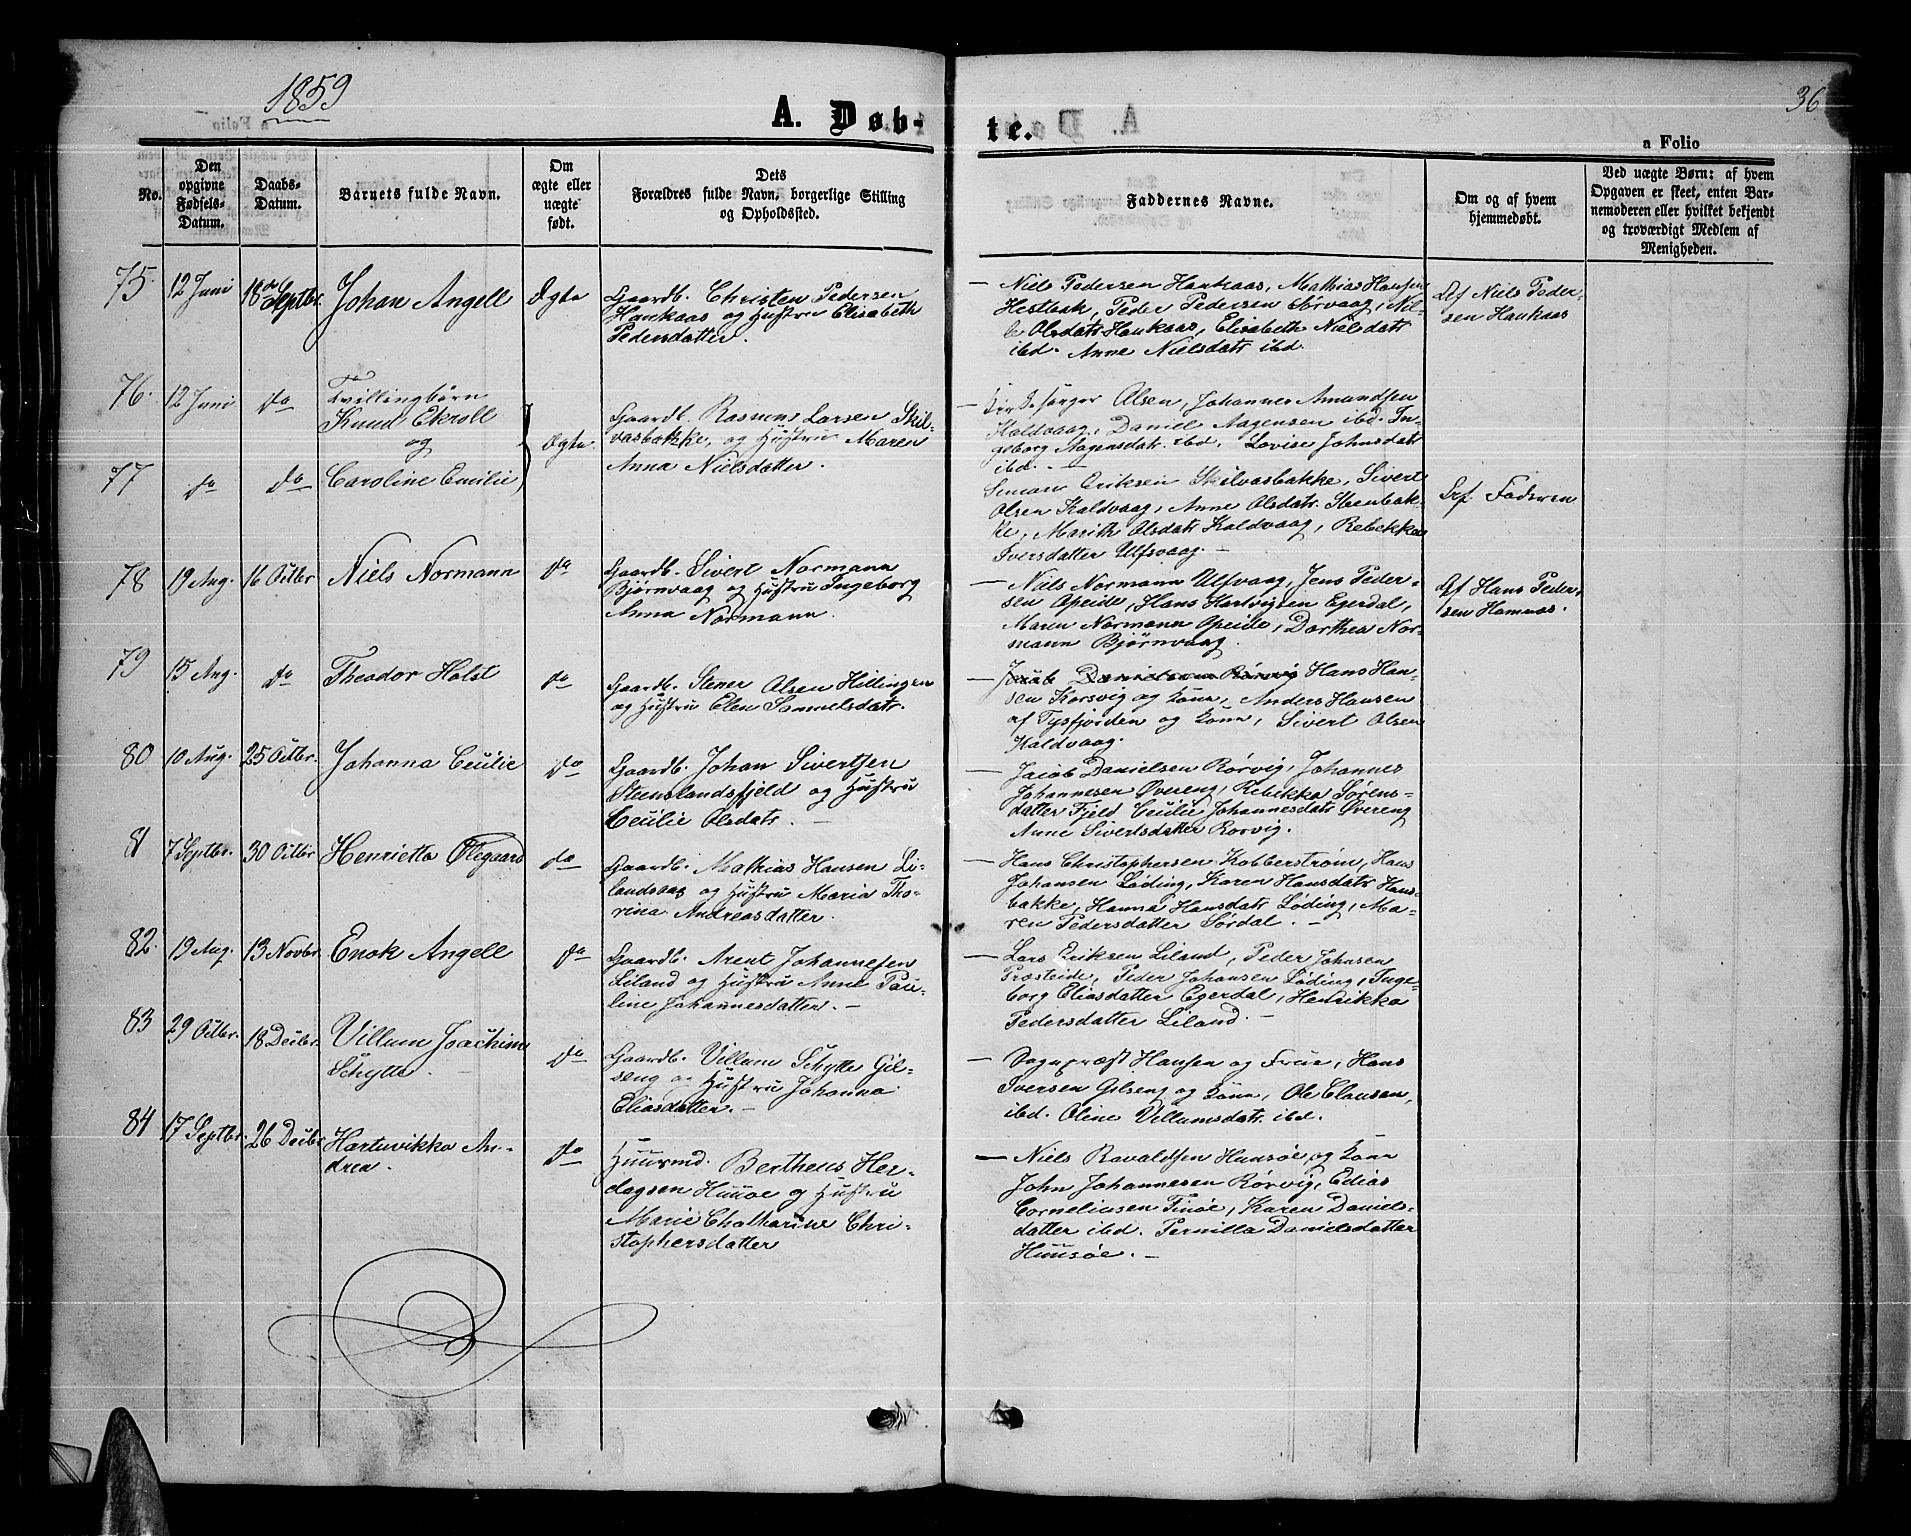 1859
36
A. Døb-
te.
a Folio
No.
Den
opgivne
Fødsels-
Datum.
Daabs-
Datum.
Barnets fulde Navn.
Om
ægte eller
uægte
født.
Dets
Forældres fulde Navn, borgerlige Stilling
og Opholdssted.
Faddernes Navne.
Om og af hvem
hjemmedøbt.
Ved uægte Børn: af hvem
Opgaven er skeet, enten Bar-
nemoderen eller hvilket bekjendt
og troværdigt Medlem af
Menigheden.
75.
12 Juni
18de Septbr.
Johan Angell
Ægte
Gaardb. Christen Pedersen
Haukaas og Hustru Elisabeth
Pedersdatter.
— Niels Pedersen Haukaas, Mathias Hansen
Hestbak, Peder Pedersen Sørvaag, Nil-
le Olsdatr Haukaas, Elisabeth Nielsdatr
ibd. Anne Nielsdatr ibd.
Af Niels Peder-
sen Haukaas
76.
12 Juni
do
Tvillingbørn
Knud Ekroll
og
Ægte
Gaardb. Rasmus Larsen Skil-
vasbakke, og Hustru Maren
Anna Nielsdatter.
— Kirkesanger Olsen, Johannes Amundsen
Kaldvaag, Daniel Aagensen ibd. In-
geborg Aagensdatr. ibd, Lovise Johnsdatr
ibd. —
77
do
do
Caroline Emilie
Simon Eriksen Skilvasbakke, Sivert
Olsen Kaldvaag, Anne Olsdatr. Steenbak-
ke, Marith Olsdatr Kaldvaag, Rebekka
Iversdatter Ulfsvaag. —
Af Faderen
78
19 Aug.
16 Octbr
Niels Normann
do
Gaardb. Sivert Normann
Bjørnvaag og Hustru Ingeborg
Anna Normann.
— Niels Normann Ulfvaag, Jens Peder-
sen Opeide, Hans Hartvigsen Egerdal,
Maren Normann Opeide, Dorthea Nor-
mann Bjørnvaag.
Af Hans Peder-
sen Hamnas.
79
15 Aug.
do
Theodor Holst
do
Gaardb. Stener Olsen Hillingen
og Hustru Elen Samuelsdatr.
— Jacob Danielsen Rørvig Hans Han-
sen Korsvig og Kone, Anders Hansen
af Tysfjorden og Kone, Sivert Olsen
Kaldvaag.
80
10 Aug.
25 Octbr.
Johanna Cecilie
do
Gaardb. Johan Sivertsen
Steenslandsfjeld og Hustru
Cecilie Olsdatr. —
— Jacob Danielsen Rørvig, Johannes
Johannesen Øvereng, Rebekka Sørens-
datter Fjeld Cecilie Johannesdatr Øvereng
Anne Sivertsdatter Rørvig.
81
7 Septbr.
30 Octbr
Henrietta Ølegaard
do
Gaardb. Mathias Hansen Li-
landvag og Hustru Maria Tho-
rina Andreasdatter.
— Hans Christophersen Kobberstrøm, Hans
Johansen Løding, Karen Hansdatr Hans-
bakke, Hanna Hansdatr Løding, Ma-
ren Pedersdatter Sørdal. —
82.
19 Aug.
13 Novbr.
Enok Angell
do
Gaardb. Arent Johannesen
Liland og Hustru Anne Pau-
line Johannesdatter. —
— Lars Eriksen Liland, Peder Johnsen
Presteide, Peder Johansen Løding, Inge-
borg Eliasdatter Egerdal, Henrikka
Pedersdatter Liland. —
83
29 Octbr.
18 Decbr.
Villum Joachim
Schytte. —
do
Gaardb. Villum Schytte Gil-
seng og Hustru Johanna
Eliasdatter. —
— Sogneprest Hansen og Frue, Hans
Iversen Gilseng og Kone, Ole Clausen,
ibd. Oline Villumsdatr. ibd.
84
17 Septbr.
26 Decbr.
Hartuvikka An-
drea.
do
Huusmd. Bertheus Her-
dagsen Husøe og Hustru
Marie Chatharine Chri-
stophersdatter
— Niels Ravaldsen Huusøe og Kone
John Johannesen Rørvig, Edias
Corneliusen Finøe, Karen Daniels-
datter ibd. Pernilla Danielsdatter
Huusøe. —